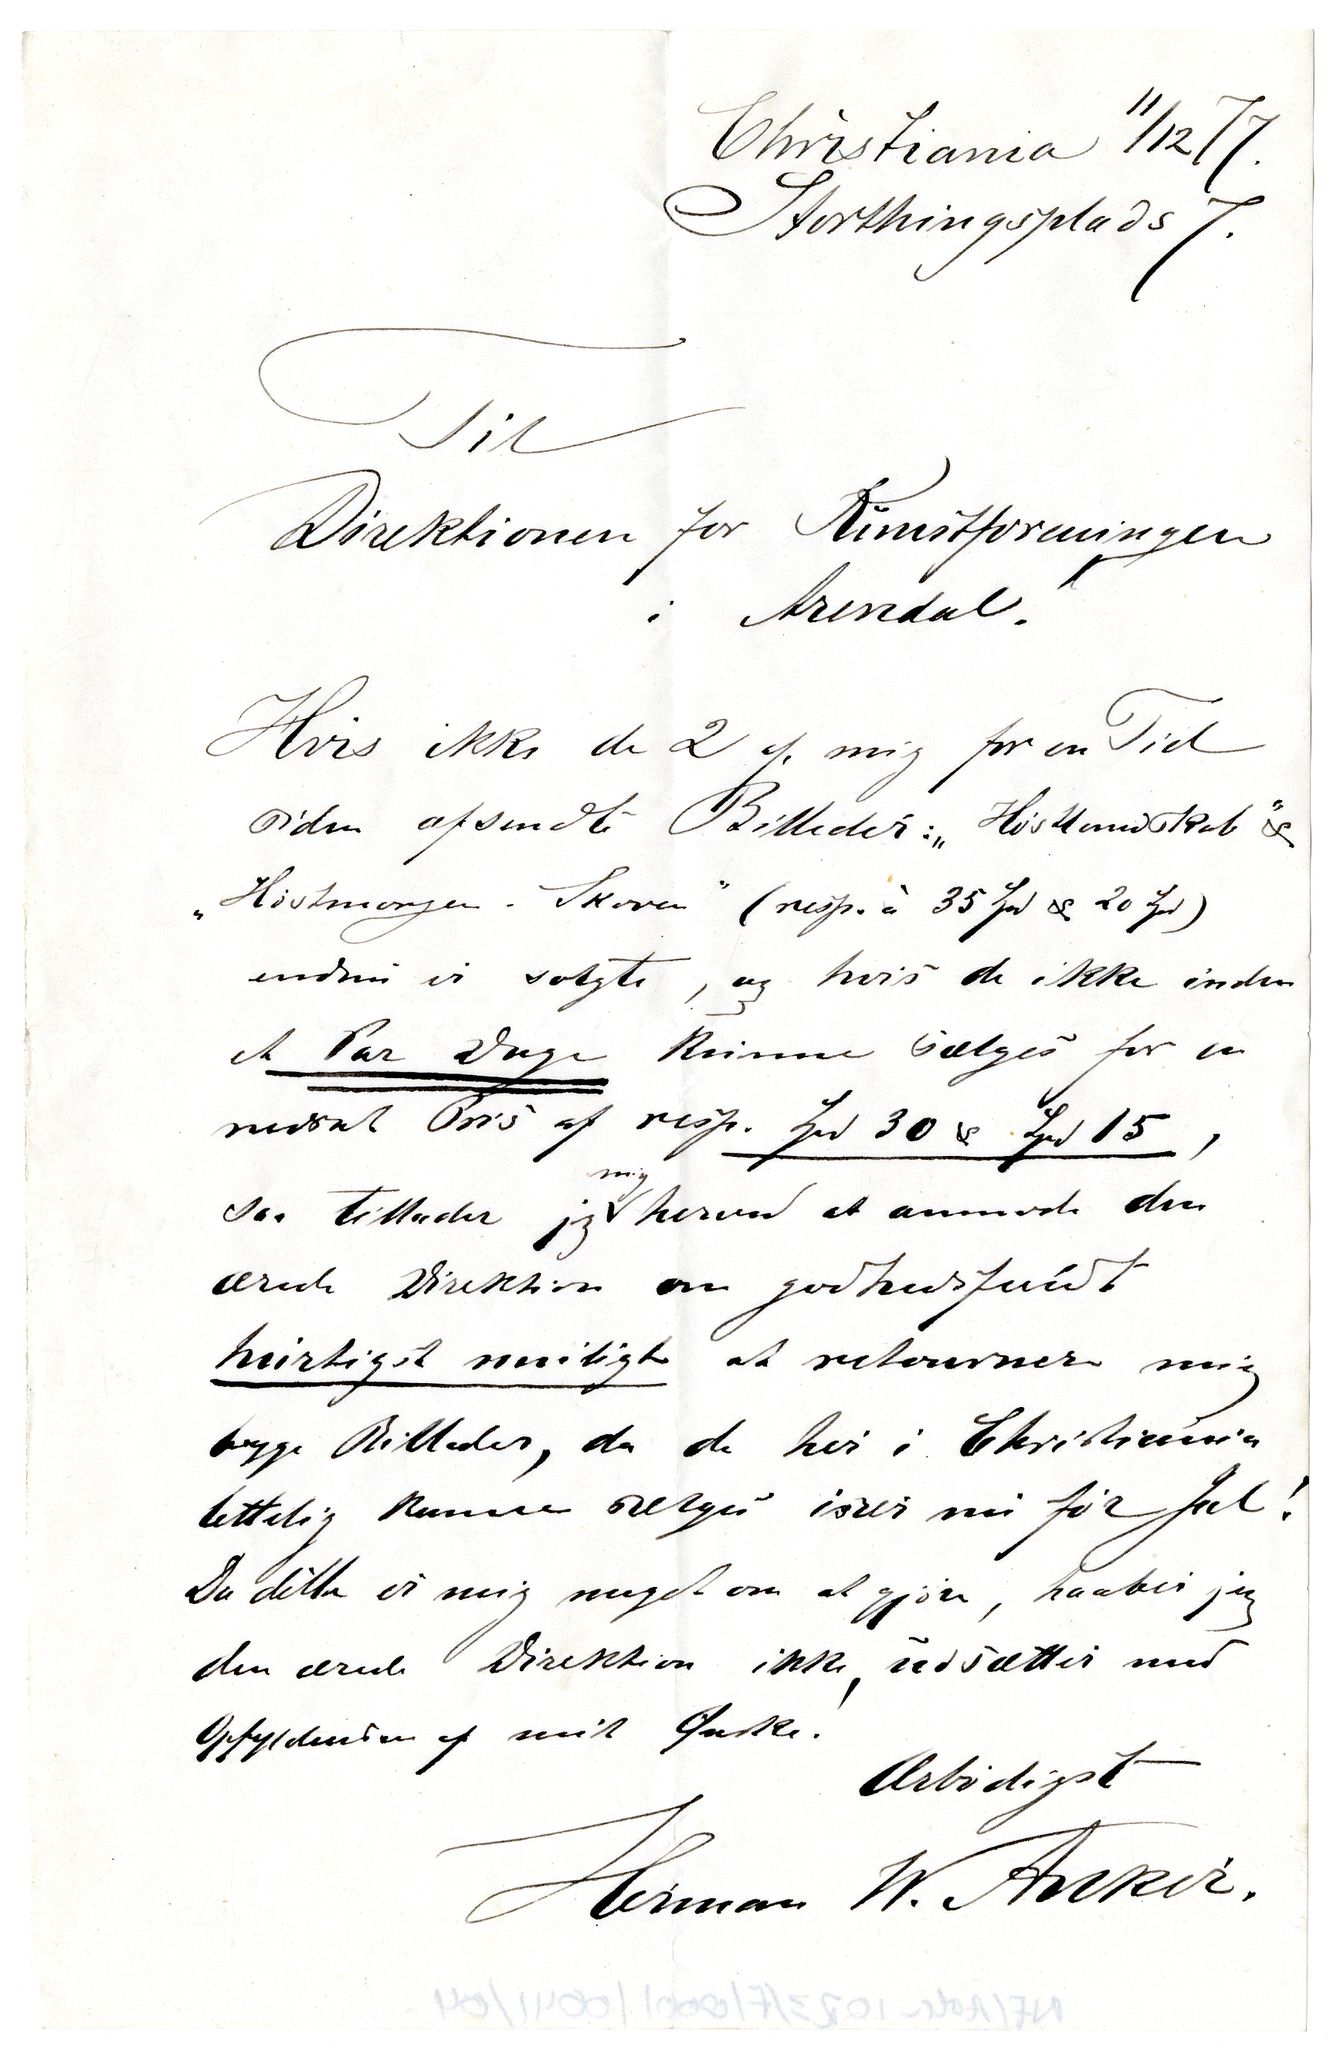 Christiania 11/12 77.
Storthingsplads 7.
Til
Direktionen for Kunstforeningen
i Arendal.
Hvis ikke de 2 af mig for en Tid
siden afsendte Billeder: „Høstlandskab" &
„Høstmorgen - Skoven" (resp. à 35 Spd & 20 Spd)
endnu er solgte, og hvis de ikke inden
et Par Dage kunne sælges for en
nedsat Pris af resp. Spd 30 & Spd 15,
saa tillader jeg mig herved at anmode den
ærede Direktion om godhedsfuldt
hurtigst muligt at retournere mig
begge Billeder, da de her i Christiania
lettelig kunne sælges især nu før Jul!
Da dette er mig meget om at gjøre, haaber jeg
den ærede Direktion ikke udsætter med
Opfyldelsen af mit Ønske!
Ærbødigst
Herman W. Anker.
NE/Ada-1023/F/0001/0041/04